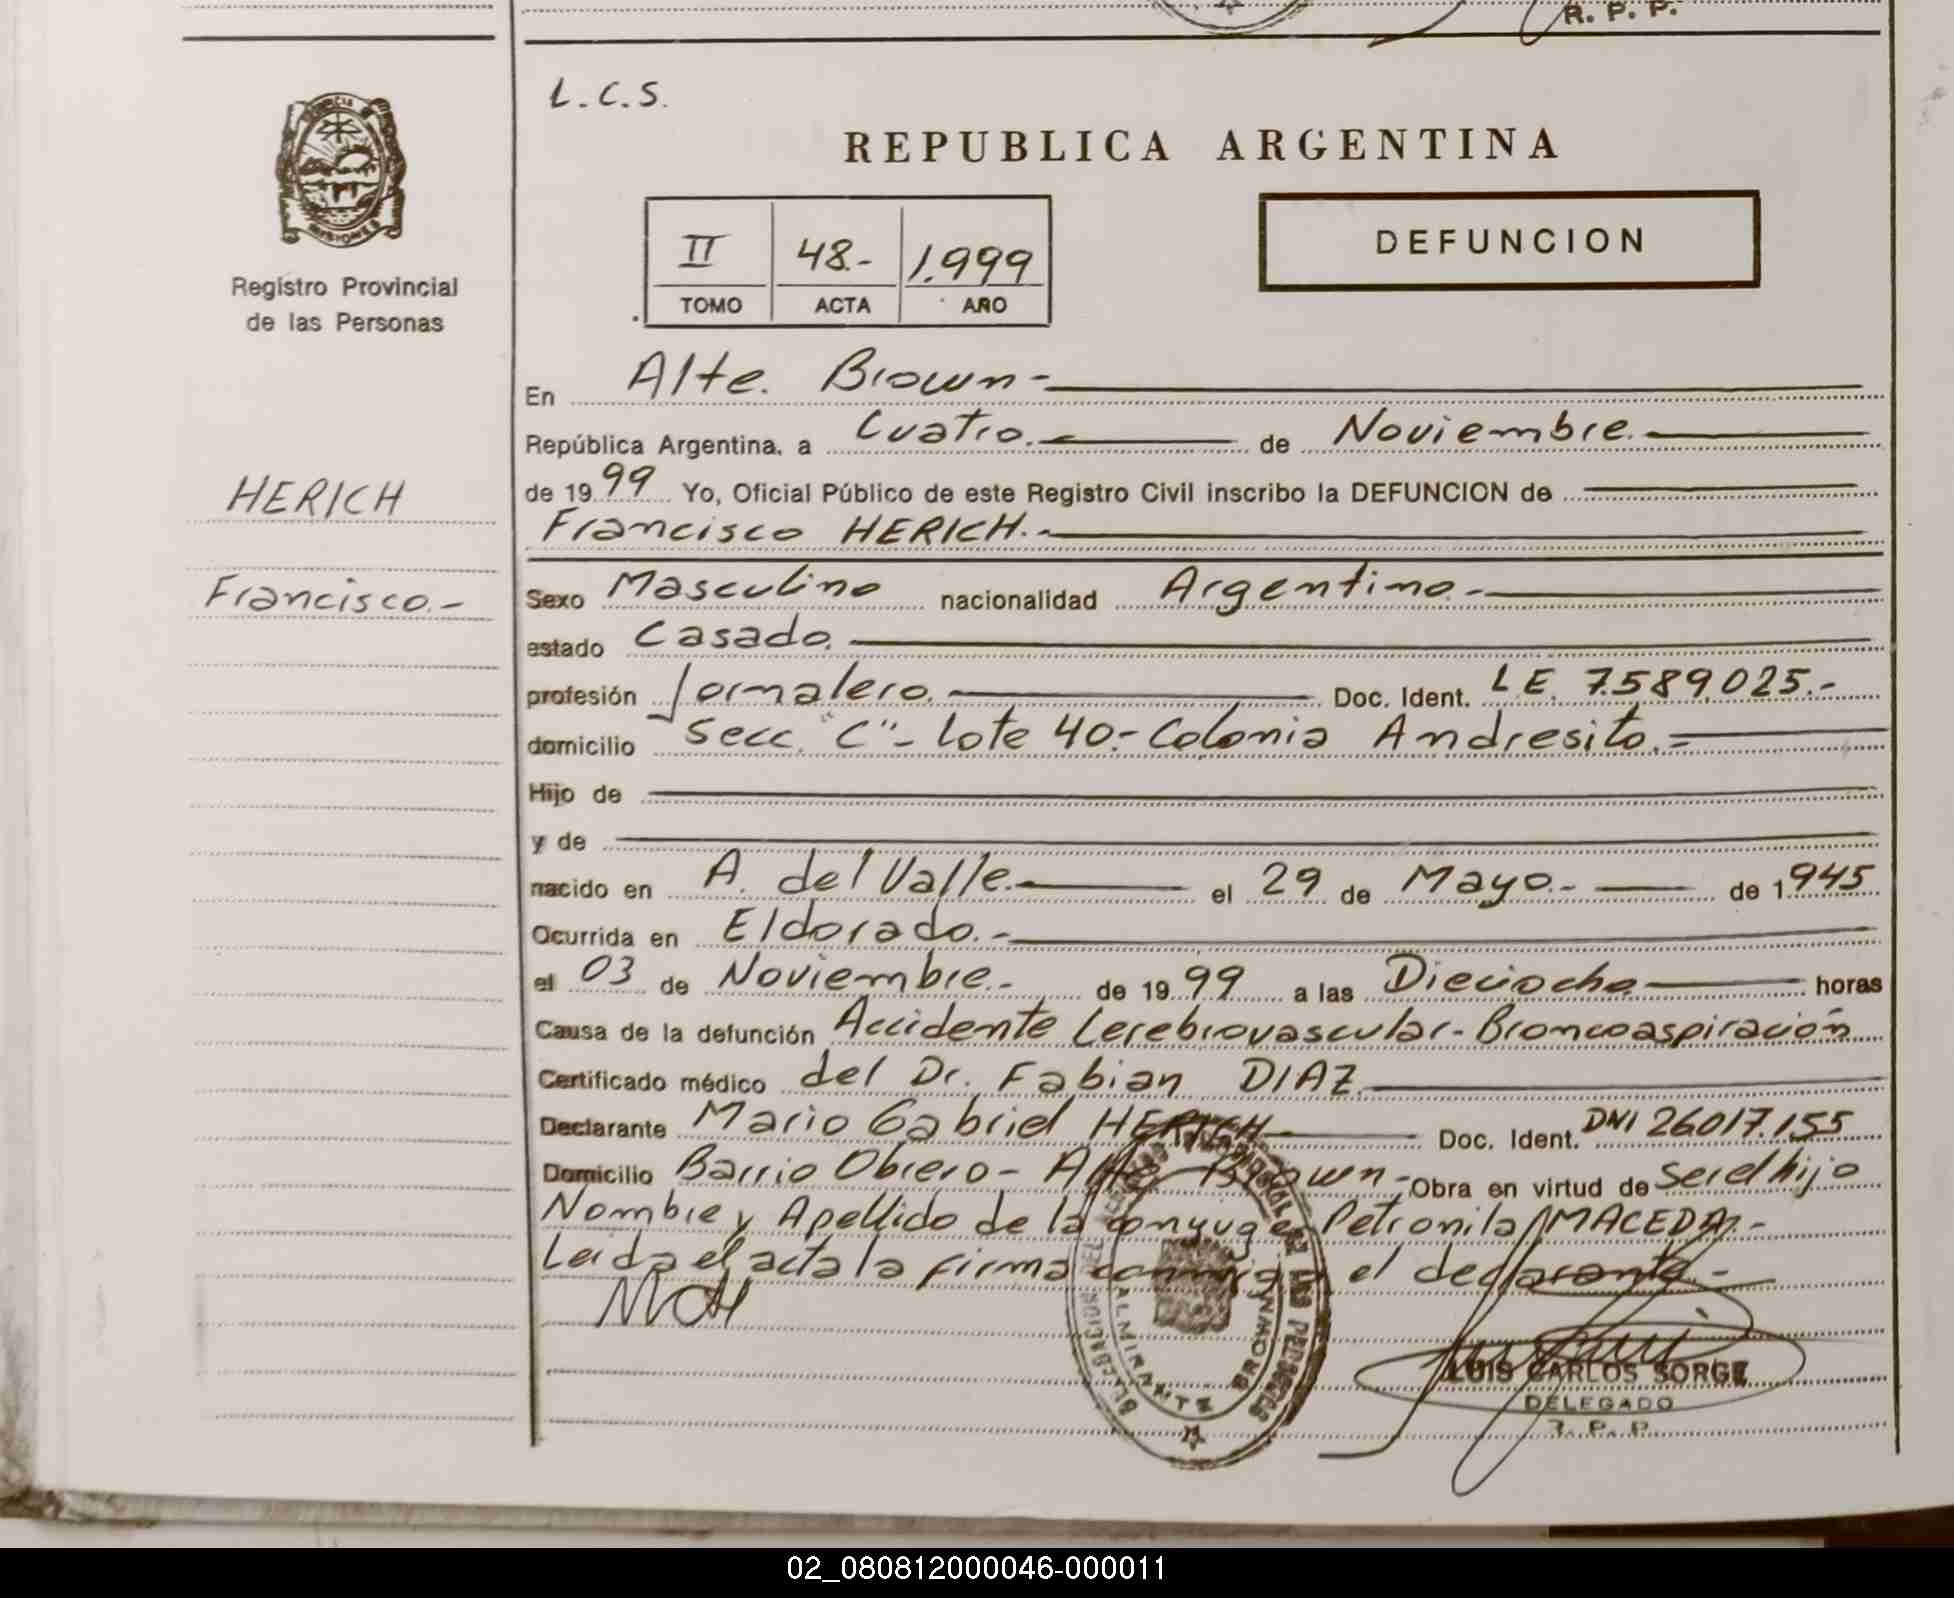 R. P. P.
L.C.S.
REPUBLICA ARGENTINA
DEFUNCION
II 48.- 1.999
TOMO ACTA AÑO
MISIONES
Registro Provincial
de las Personas
HERICH
Francisco.-
En Alte. Brown-
República Argentina, a Cuatro. de Noviembre.
de 1999 Yo, Oficial Público de este Registro Civil inscribo la DEFUNCION de
Francisco HERICH.-
Sexo Masculino nacionalidad Argentino.-
estado Casado.
profesión Jornalero. Doc. Ident. L.E. 7.589.025.-
domicilio Secc. "C"- Lote 40.- Colonia Andresito.-
Hijo de
y de
nacido en A. del Valle. el 29 de Mayo.- de 1.945
Ocurrida en Eldorado.-
el 03 de Noviembre.- de 1999 a las Dieciocho horas
Causa de la defunción Accidente Cerebrovascular- Broncoaspiración
Certificado médico del Dr. Fabian DIAZ.
Declarante Mario Gabriel HERICH Doc. Ident. DNI 26.017.155
Domicilio Barrio Obrero- Alte Brown- Obra en virtud de ser el hijo
Nombre y Apellido de la conyuge Petronila MACEDA.-
Leida el acta la firma conmigo el declarante.-
MGH
DELEGACION DEL REGISTRO PROVINCIAL DE LAS PERSONAS
ALMIRANTE BROWN
LUIS CARLOS SORGE
DELEGADO
R. P. P.
02_080812000046-000011